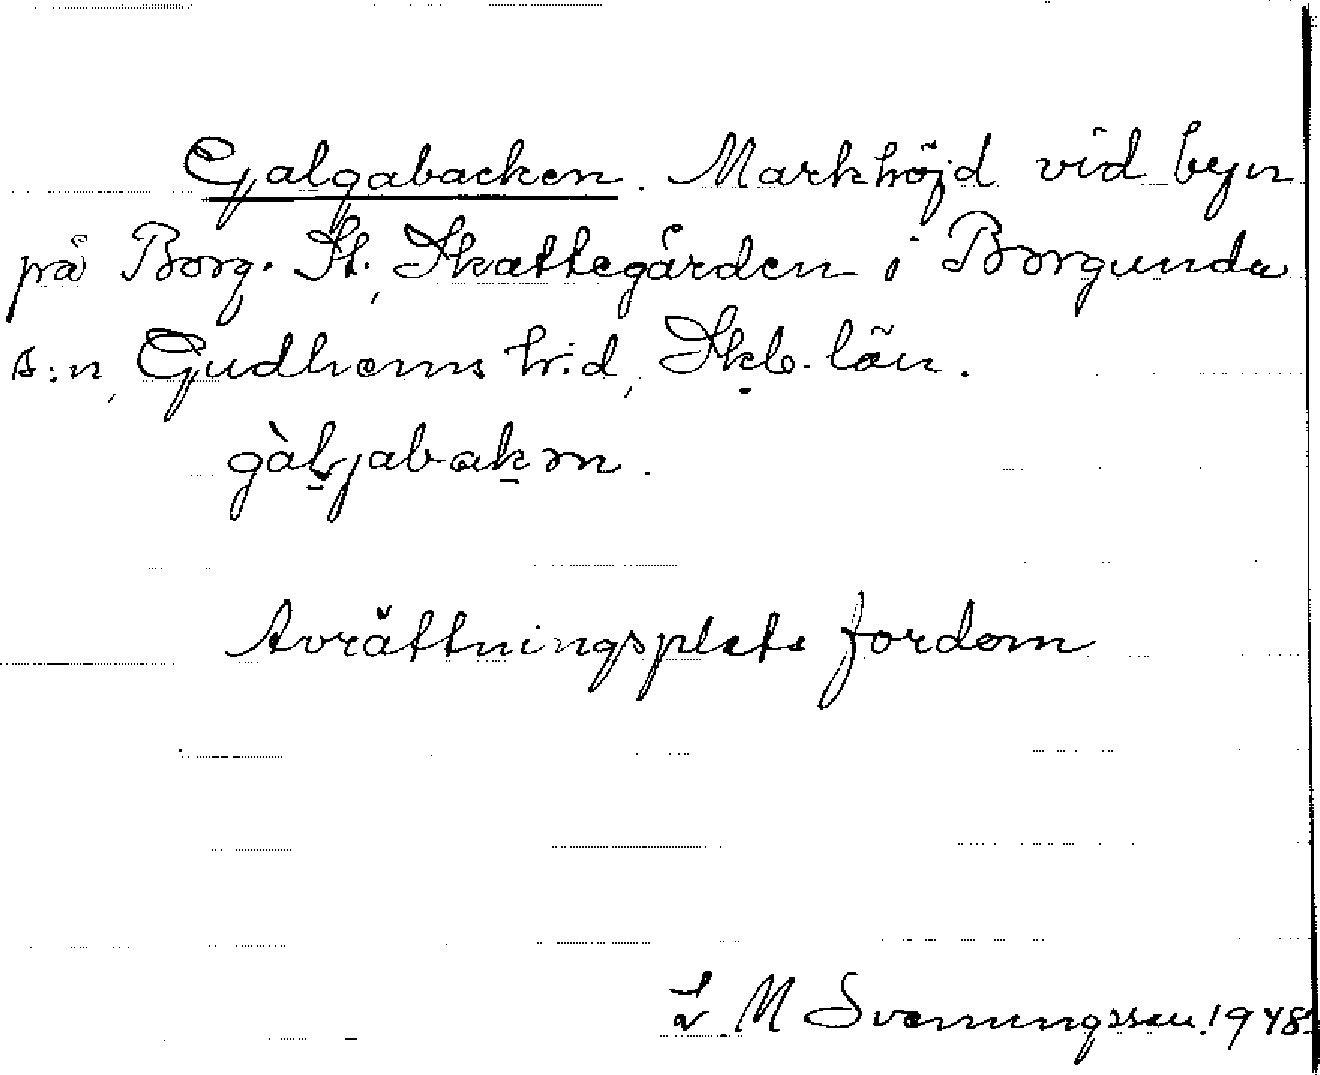 Galgabacken. Markhöjd vid byn
på Borg. St. Skattegården i Borgunda
s:n, Gudhems h:d, Skb. län.
gàljabakən.
Avrättningsplats fordom
L M Svenungsson. 1948.